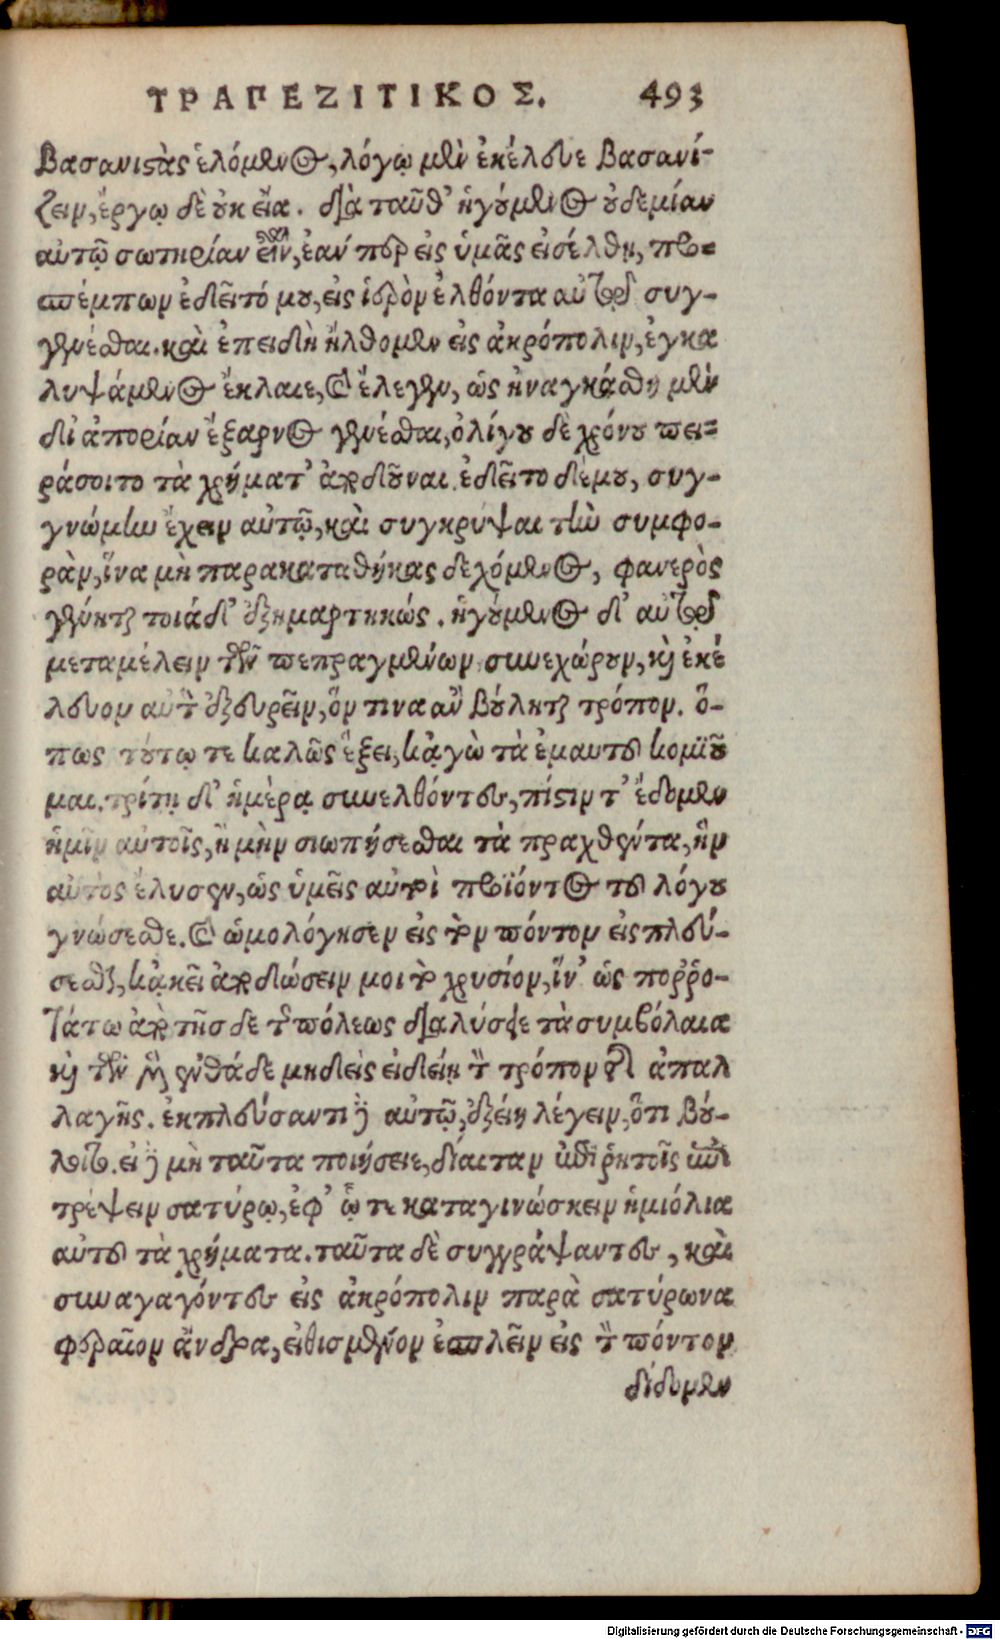 ΤΡΑΠΕΖΙΤΙΚΟΣ. 493
βασανιστὰς ἑλόμενος, λόγῳ μὲν ἐκέλευε βασανί-
ζειν, ἔργῳ δὲ οὐκ εἴα. διὰ ταῦθ' ἡγούμενος οὐδεμίαν
αὑτῷ σωτηρίαν εἶναι, ἐάν περ εἰς ὑμᾶς εἰσέλθῃ, προσ-
πέμπων ἐδεῖτό μου, εἰς ἱερὸν ἐλθόντα αὐτῷ συγ-
γενέσθαι. καὶ ἐπειδὴ ἤλθομεν εἰς ἀκρόπολιν, ἐγκα
λυψάμενος ἔκλαιε, καὶ ἔλεγεν, ὡς ἠναγκάσθη μὲν
δι' ἀπορίαν ἔξαρνος γενέσθαι, ὀλίγου δὲ χρόνου πει-
ράσοιτο τὰ χρήματ' ἀποδοῦναι. ἐδεῖτο δέ μου, συγ-
γνώμην ἔχειν αὐτῷ, καὶ συγκρύψαι τὴν συμφο-
ρὰν, ἵνα μὴ παρακαταθήκας δεχόμενος, φανερὸς
γένηται τοιάδ' ἐξημαρτηκώς. ἡγούμενος δ' αὐτῷ
μεταμέλειν τῶν πεπραγμένων συνεχώρουν, καὶ ἐκέ
λευον αὐτὸν ἐξευρεῖν, ὅν τινα ἂν βούληται τρόπον. ὅ-
πως τούτῳ τε καλῶς ἕξει, κᾀγὼ τὰ ἐμαυτοῦ κομιοῦ
μαι. τρίτῃ δ' ἡμέρᾳ συνελθόντες, πίστιν τ' ἔδομεν
ἡμῖν αὐτοῖς, ἦ μὴν σιωπήσεσθαι τὰ πραχθέντα, ἣν
αὐτὸς ἔλυσεν, ὡς ὑμεῖς αὐτοὶ προϊόντος τοῦ λόγου
γνώσεσθε. καὶ ὡμολόγησεν εἰς τὸν πόντον εἰσπλεύ-
σεσθαι, κᾀκεῖ ἀποδώσειν μοι τὸ χρυσίον, ἵν' ὡς ποῤῥο-
τάτω ἀπὸ τῆσδε τῆς πόλεως διαλύσειε τὰ συμβόλαια
καὶ τῶν μὲν ἐνθάδε μηδεὶς εἰδείη τὸν τρόπον τῆς ἀπαλ
λαγῆς. ἐκπλεύσαντι δὲ αὐτῷ, ἐξείη λέγειν, ὅτι βού-
λοιτο. εἰ δὲ μὴ ταῦτα ποιήσειε, δίαιταν ἐπὶ ῥητοῖς ἐπι
τρέψειν σατύρῳ, ἐφ' ᾧ τε καταγινώσκειν ἡμιόλια
αὐτοῦ τὰ χρήματα. ταῦτα δὲ συγγράψαντες, καὶ
συναγαγόντες εἰς ἀκρόπολιν παρὰ σατύρωνα
φεραῖον ἄνδρα, εἰθισμένον ἐσπλεῖν εἰς τὸν πόντον
δίδομεν
Digitalisierung gefördert durch die Deutsche Forschungsgemeinschaft - DFG